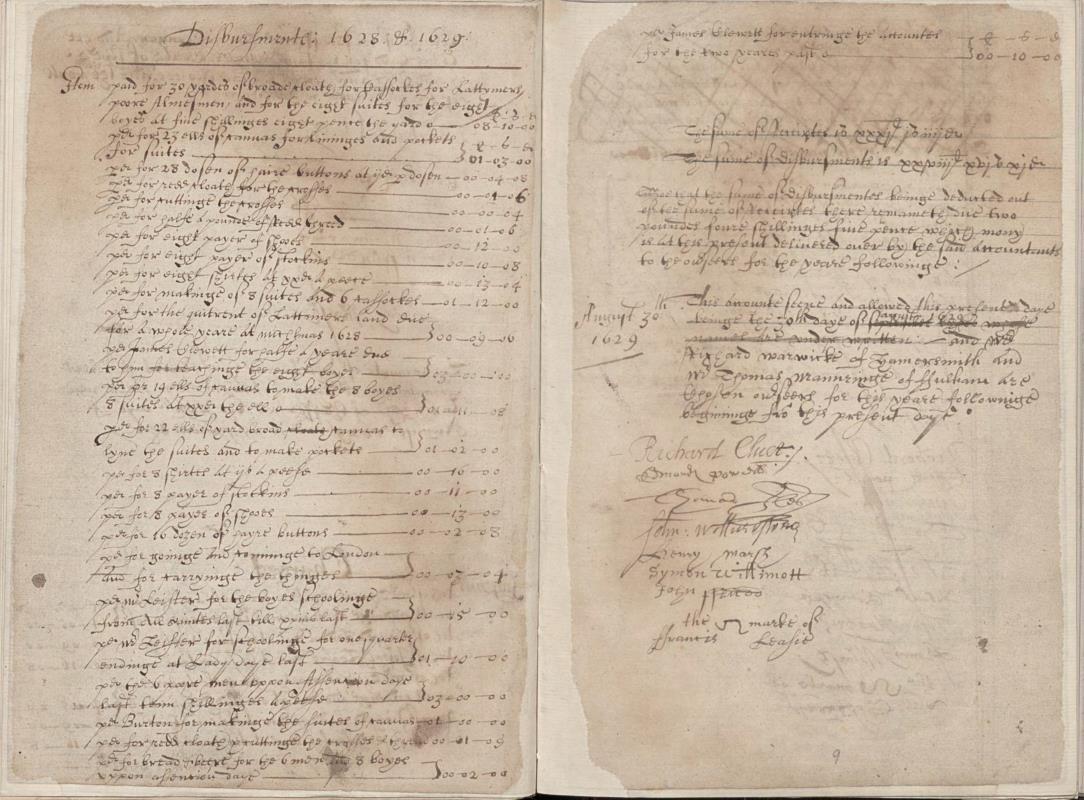 Disbursmente: 1628 & 1629:
Item paid for 30 yardes of broade cloath for Cassockes for Lattymers
poore Almesmen, and for the eight suites for the eight
boyes at five shillinges eight pence the yard — 08-10-00
per for 23 ells of canvas for lininges and pockets
for suites — 01-03-00
per for 28 dosen of haire buttons at ijd p dosen — 00-04-08
per for redd cloath for the crosses — 00-01-06
per for cuttinge the crosses — 00-00-04
per for halfe a pounde of redd thred — 00-01-06
per for eight payer of shooes — 00-12-00
per for eight payer of stockins — 00-10-08
per for eight shirtes at xxd a peece — 00-13-04
per for makinge of 8 suites and 6 cassockes — 01-12-00
per for the quitrent of Lattimers land due
for a whole yeare at michlmas 1628 — 00-09-
per James Clewett for halfe a yeare due
to him for teachinge the eight boyes — 03-00-00
per pr 19 ells of canvas to make the 8 boyes
8 suites at xxd the ell — 01-11-08
per for 22 ells of yard broad cloath canvas to
lyne the suites and to make pockets — 01-02-00
per for 8 shirtes at ijs a peese — 00-16-00
per for 8 payer of stockins — 00-11-00
per for 8 payer of shooes — 00-13-00
per for 16 dozen of hayre buttons — 00-02-08
per for goinge and cominge to London
and for carryinge the thinges — 00-07-04
per mr Leister for the boyes schoolinge
from All saintes last till xpmas last — 00-15-00
per mr Leister for schoolinge for one quarter
endinge at Lady daye last — 01-10-00
per the 6 poore men uppon Assention daye
last tenn shillinges a peese — 03-00-00
per Burton for makinge the suites of canvas — 01-00-00
per for redd cloath p cuttinge the crosses & thred — 00-01-09
per for bread & beere for the 6 men and 8 boyes
uppon assention daye — 00-02-00
per James Clewett for entringe the accountes
for the two yeares past — 00-10-00
The some of Receiptes is xxxjl js iiijd
The sume of disbursments is xxviijl xvjs xjd
Soe that the sume of disbursmentes beinge deducted out
of the sume of Receiptes there remaineth due two
poundes foure shillinges five pence which mony
is at this present delivered over by the said accountants
to the overseers for the yeare followinge:
August 30th 1629
This accounte seene and allowed this present daye
beinge the 30th daye of August 1629
names are under written: and mr
Richard Warwicke of Hamersmith and
mr Thomas Mannringe of Fulham are
chosen overseers for this yeare followinge
beginninge fro this present daye
Richard Cluet.
Edmond Powell
Thomas
John:
Henry Marsh
Symon Willmott
John
the marke of
Francis Leasie
9